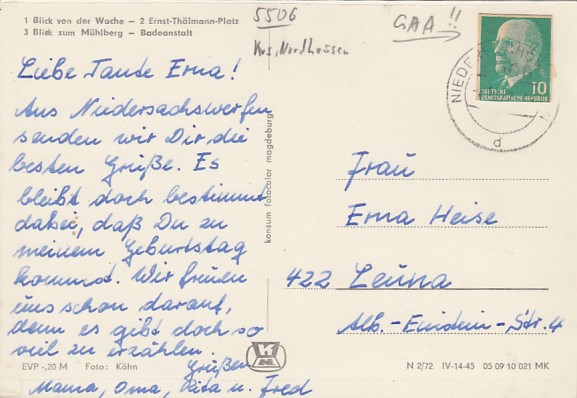 1 Blick von der Wache – 2 Ernst-Thälmann-Platz
3 Blick zum Mühlberg – Badeanstalt
5506
Krs. Nordhausen
GAA!!
10
DEUTSCHE
DEMOKRATISCHE REPUBLIK
NIEDE
d
Liebe Tante Erna!
Aus Niedersachswerfen
senden wir Dir die
besten Grüße. Es
bleibt doch bestimmt
dabei, daß Du zu
meinem Geburtstag
kommst. Wir freuen
uns schon darauf,
denn es gibt doch so
viel zu erzählen.
Grüßen
Mama, Oma, Vati u. Fred
konsum fotocolor magdeburg
Frau
Erna Heise
422 Leuna
Alb.-Einstein-Str. 4
EVP -,20 M Foto: Köhn
N 2/72 IV-14-45 05 09 10 021 MK